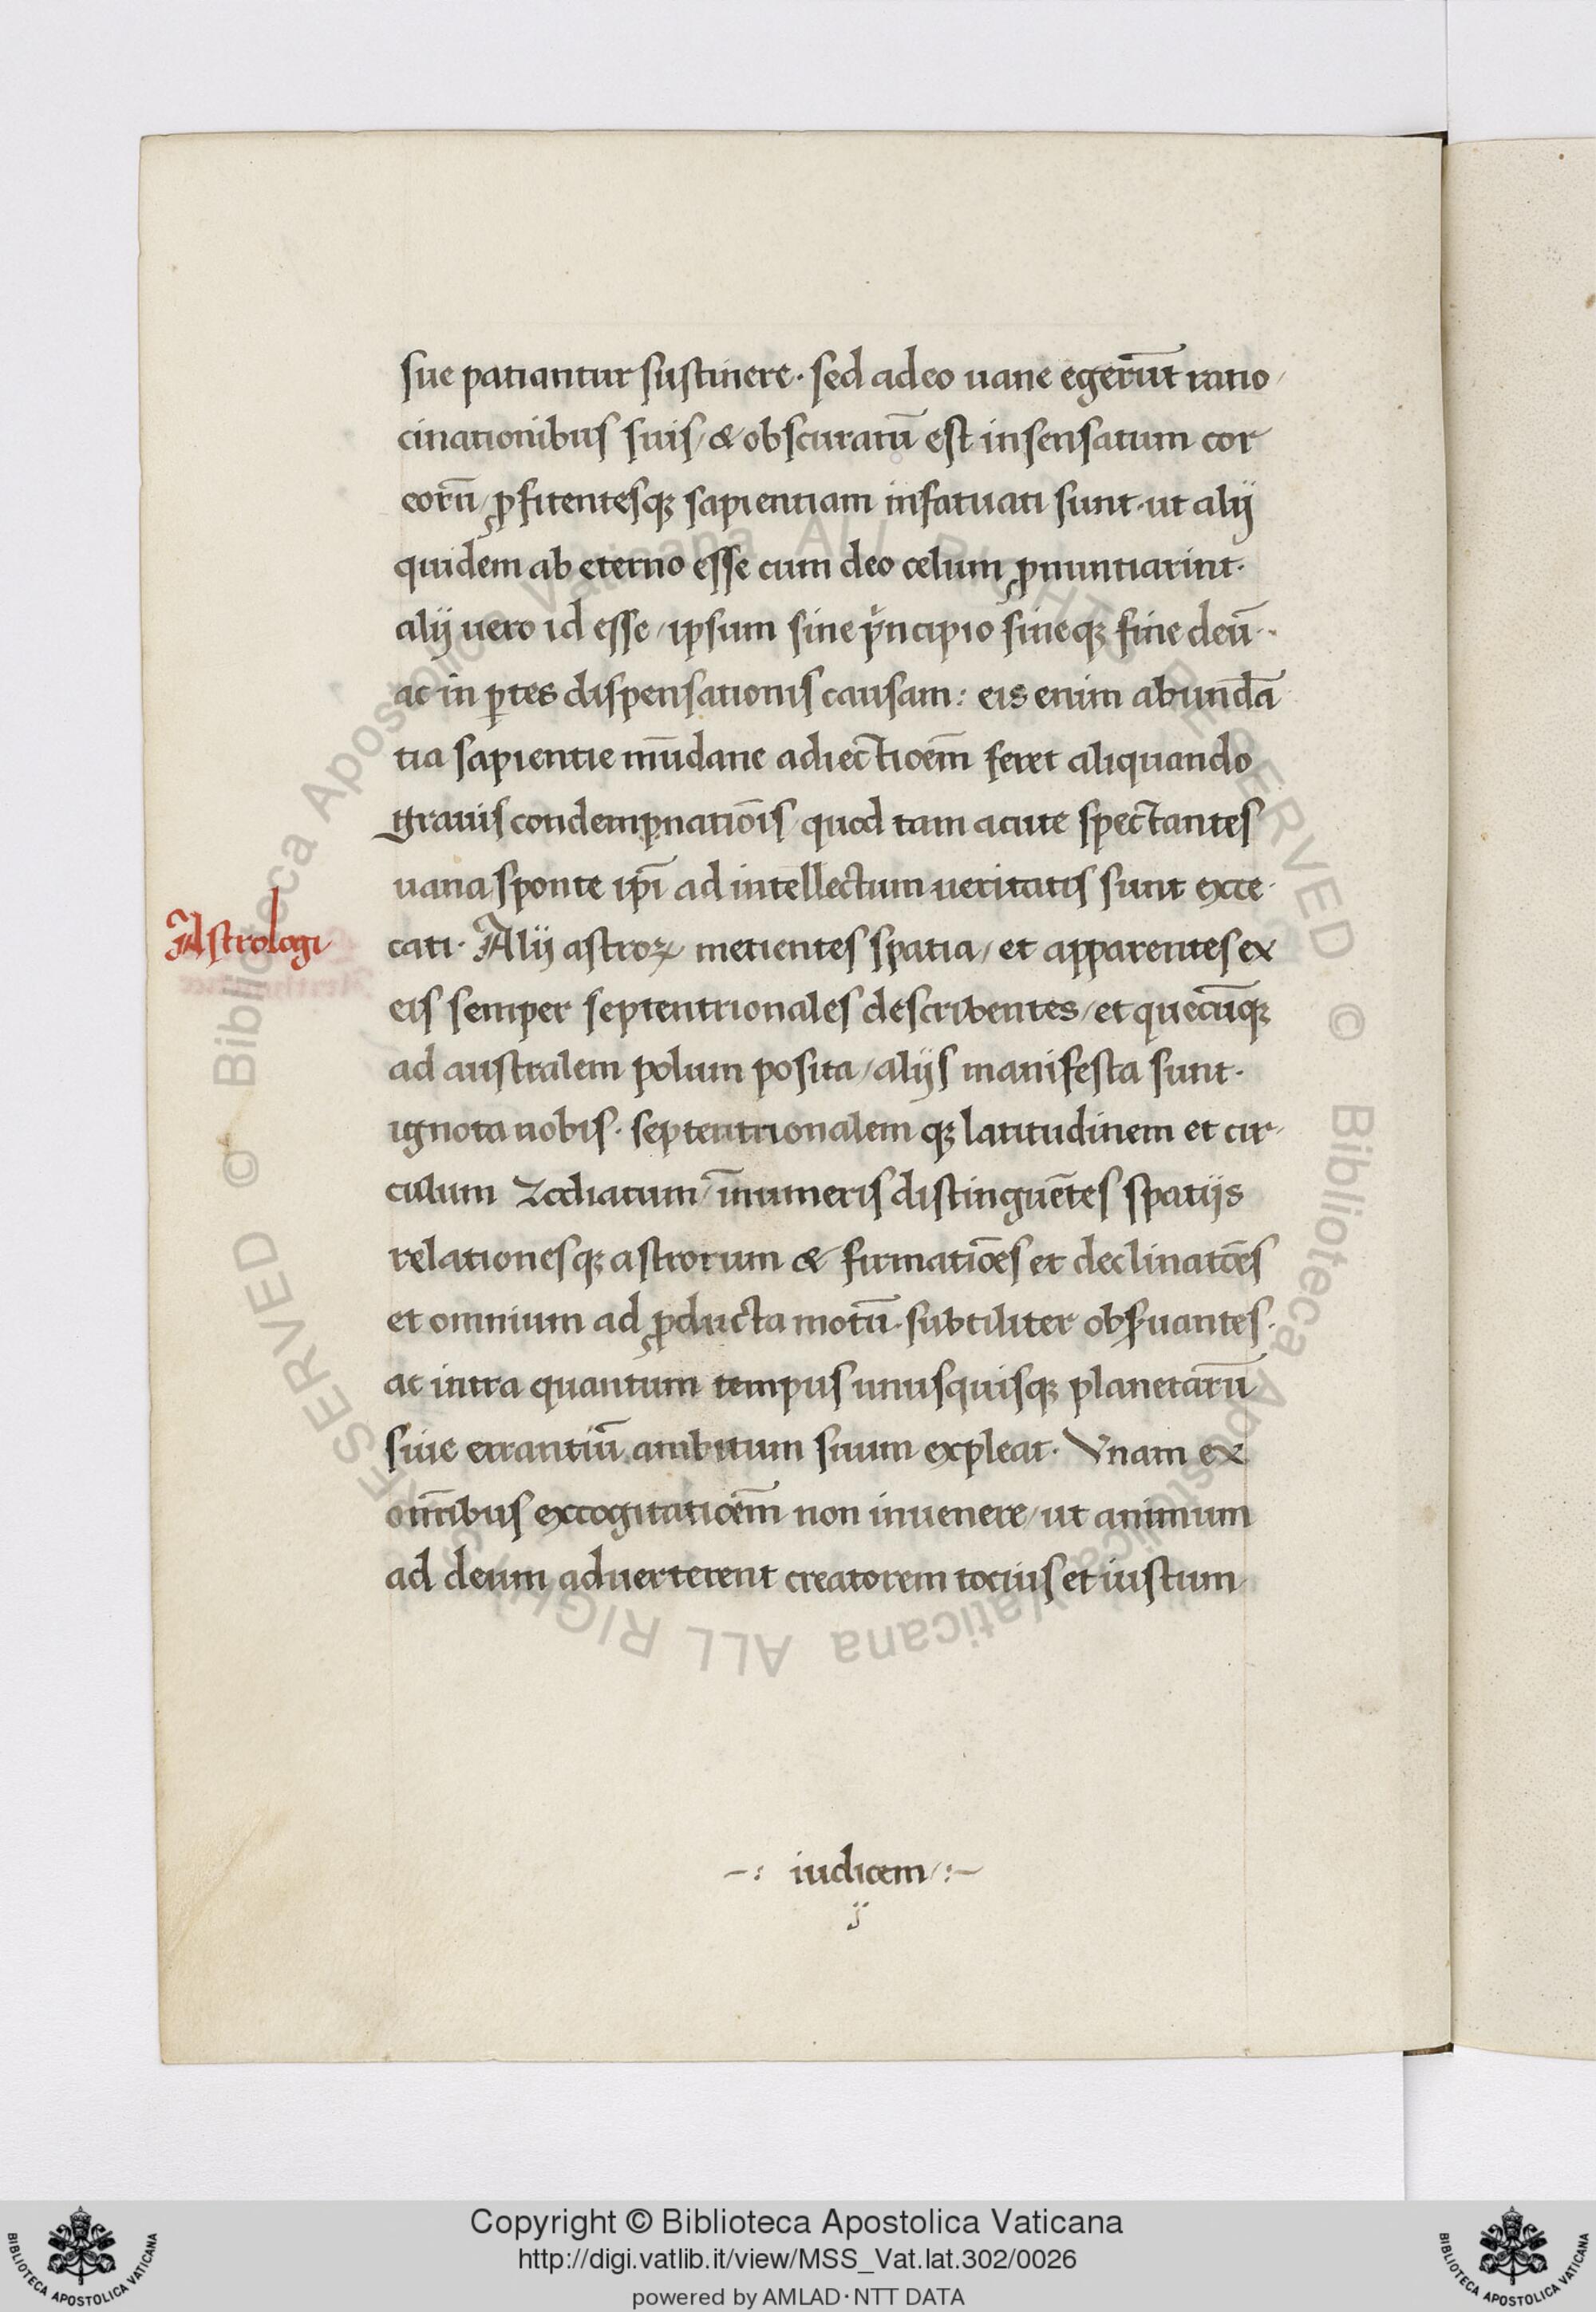 sue patiantur sustinere· sed adeo uane egerūt ratio/
cinationibus suis/ & obscuratū est insensatum cor
eorū/ ꝓfitentesqꝫ sapientiam infatuati sunt· ut alij
quidem ab eterno esse cum deo celum ꝓnuntiarint·
alij uero id esse/ ipsum sine pͥncipio sineqꝫ fine deū·
ac in ꝑtes dispensationis causam: eis enim abundā
tia sapientie mūdane adiectioēm feret aliquando
grauis condempnatiōis/ quod tam acute spectantes
uana sponte ip̄i ad intellectum ueritatis sunt exce·
Astrologi
cati· Alij astroꝝ metientes spatia/ et apparentes ex
eis semper septentrionales describentes/ et quecūqꝫ
ad australem polum posita/ alijs manifesta sunt·
ignota nobis· septentrionalem qꝫ latitudinem et cir·
culum Zodiacum/ īnumeris distinguētes spatijs
relationesqꝫ astrorum & firmatiōes et declinatōes
et omnium ad ꝓducta motū· subtiliter obẜuantes·
ac intra quantum tempus unusquisqꝫ planetarū
siue errantiū ambitum suum expleat· Vnam ex
om̄ibus excogitatioēm non inuenere/ ut animum
ad deum aduerterent creatorem tocius et iustum
–: iudicem/:–
Copyright © Biblioteca Apostolica Vaticana
http://digi.vatlib.it/view/MSS_Vat.lat.302/0026
powered by AMLAD·NTT DATA
BIBLIOTECA APOSTOLICA VATICANA
BIBLIOTECA APOSTOLICA VATICANA
© Biblioteca Apostolica Vaticana ALL RIGHTS RESERVED
© Biblioteca Apostolica Vaticana ALL RIGHTS RESERVED